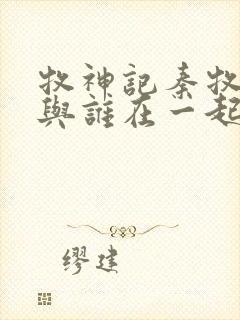 牧神記秦牧
與誰在一起
繆建